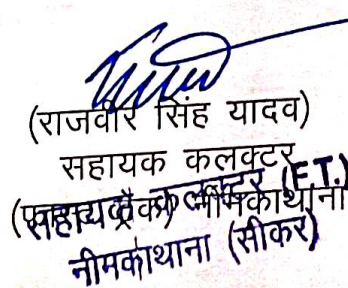 (राजवीर सिंह यादव)
सहायक कलक्टर
(फास्ट ट्रैक) नीमकाथाना
सहायक कलक्टर (F.T.)
नीमकाथाना (सीकर)